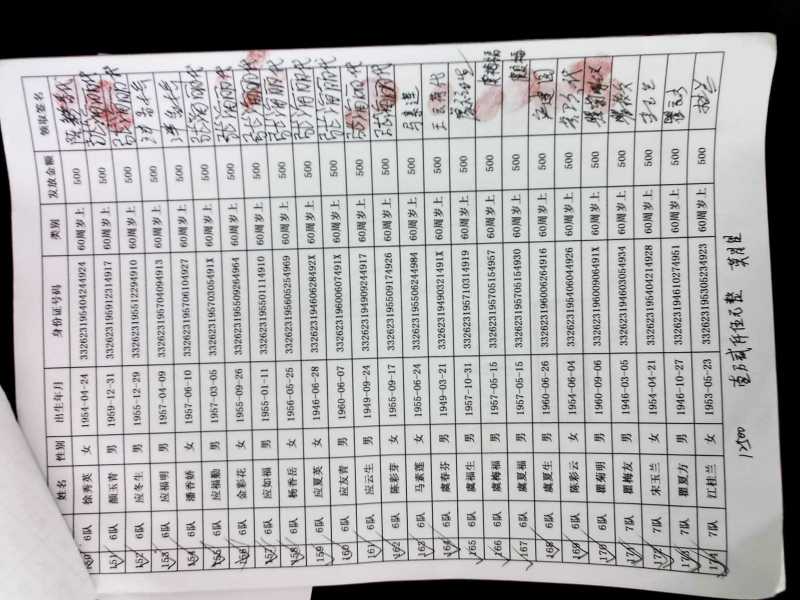 姓名 性别 出生年月 身份证号码 类别 发放金额 领取签名
150 6队 徐秀英 女 1954-04-24 332623195404244924 60周岁上 500
151 6队 颜玉青 男 1959-12-31 332623195912314917 60周岁上 500 张海丽代
152 6队 应冬生 男 1955-12-29 332623195512294910 60周岁上 500 张海丽代
153 6队 应福明 男 1957-04-09 332623195704094913 60周岁上 500
154 6队 潘香娇 女 1957-06-10 332623195706104927 60周岁上 500
155 6队 应福勤 男 1957-03-05 33262319570305491X 60周岁上 500 张海丽代
156 6队 金彩花 女 1955-09-26 332623195509264964 60周岁上 500 张海丽代
157 6队 应如福 男 1955-01-11 332623195501114910 60周岁上 500 张海丽代
158 6队 杨香岳 女 1956-05-25 332623195605254969 60周岁上 500 张海丽代
159 6队 应夏英 男 1946-06-28 33262319460628492X 60周岁上 500 张海丽代
160 6队 应友青 男 1960-06-07 33262319600607491X 60周岁上 500 张海丽代
161 6队 应云生 男 1949-09-24 332623194909244917 60周岁上 500 张海丽代
162 6队 陈彩芽 女 1955-09-17 332623195509174926 60周岁上 500 张海丽代
163 6队 马素莲 女 1955-06-24 332623195506244984 60周岁上 500 马素莲
164 6队 虞春芬 男 1949-03-21 33262319490321491X 60周岁上 500
165 6队 虞福生 男 1957-10-31 332623195710314919 60周岁上 500
166 6队 虞梅福 女 1957-05-15 332623195705154957 60周岁上 500 虞梅福
167 6队 虞夏福 男 1957-05-15 332623195705154930 60周岁上 500
168 6队 虞夏生 男 1960-06-26 332623196006264916 60周岁上 500
169 6队 陈彩云 女 1954-06-04 332623195406044926 60周岁上 500
170 6队 瞿菊明 男 1960-09-06 33262319600906491X 60周岁上 500
171 7队 瞿梅友 男 1946-03-05 332623194603054934 60周岁上 500
172 7队 宋玉兰 女 1954-04-21 332623195404214928 60周岁上 500
173 7队 瞿夏方 男 1946-10-27 332623194610274951 60周岁上 500
174 7队 江桂兰 女 1953-05-23 332623195305234923 60周岁上 500
12500 壹万贰仟伍佰元整